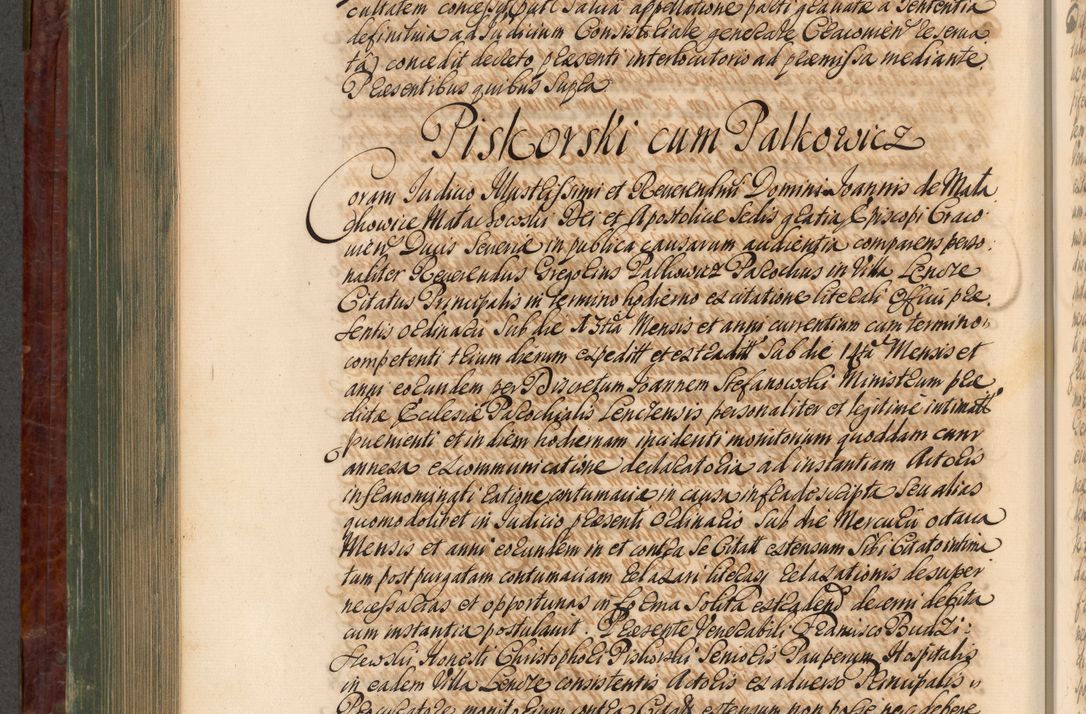 cultatem concessis salva appellatione parti gravatæ a Sententia
definitiva ad Judicium Consistoriale generale Cracovien reserva
ta) concedit decreto præsenti interlocutorio ad præmissa mediante
Præsentibus quibus supra
Piskorski cum Palkowicz
Coram Judicio Illustrissimi et Reverendmi Domini Joannis de Mala
chowice Malachowski Dei et Apostolicæ Sedis gratia Episcopi Craco
vien Ducis Severiæ in publica causarum audientia comparens perso
naliter Reverendus Gregorius Palkowicz Parochus in Villa Lencze
Citatus Principalis in termino hodierno ex citatione literali Officii præ
sentis ordinarii sub die 13tia Mensis et anni currentium cum termino
competenti trium dierum expeditt et extraditt sub die 14ta Mensis et
anni eorundem per Discretum Joannem Stefanowski Ministrum præ
dictæ Ecclesiæ Parochialis Lencensis personaliter et legitime intimatt
provenienti et in diem hodiernam incidenti monitorium quoddam cum
annexa excommunicatione declaratoria ad instantiam Actoris
infranominati ratione contumaciæ in causa infradoscripta seu alias
quomodolibet in Judicio præsenti ordinario sub die Mercurii octava
Mensis et anni eorundem in et contra se Citatt extensum sibi Citato intima
tum post purgatam contumaciam relaxari literasq relaxationis desuper
necessarias et opportunas in forma solita extradend decerni debita
cum instantia postulavit. Præsente Venerabili Francisco Budzi:
szewski Honesti Christophori Piskorski Senioris Pauperum Hospitalis
in eadem Villa Lencze consistentis Actoris ex adverso Principalis
Procuratore monitorium contra Citatt extensum non posse nec debere